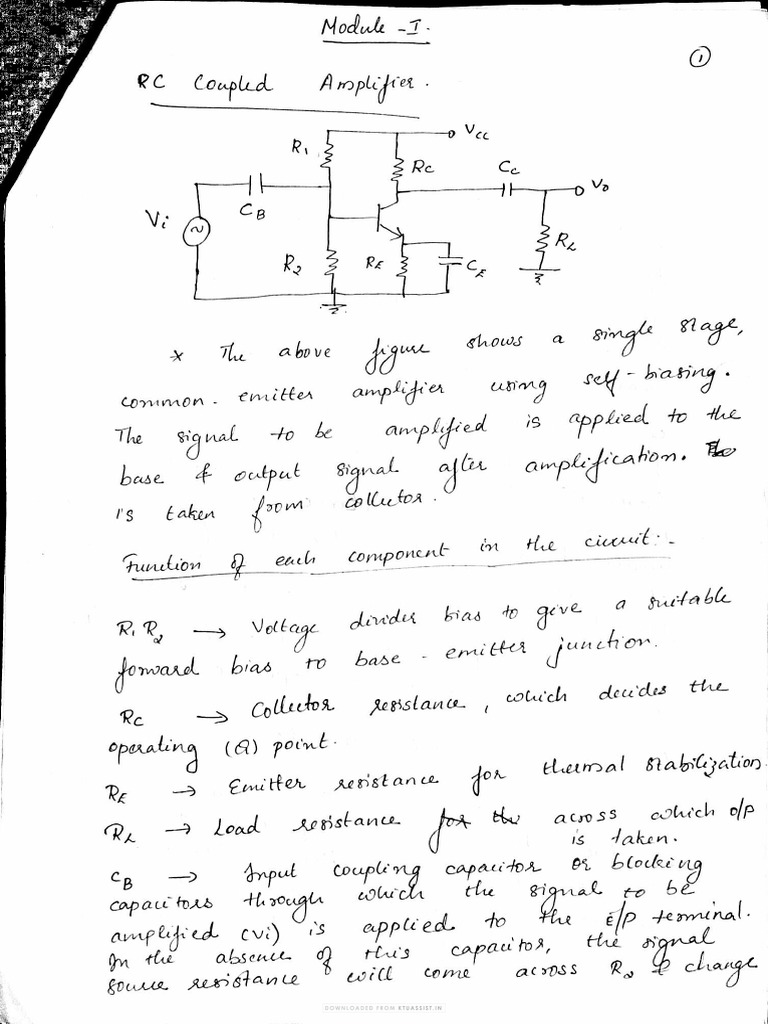 Module - I.
1
RC Coupled Amplifier.
VCC
R1
RC
CC
Vo
CB
Vi
R2
RE
CE
RL
* The above figure shows a single stage,
common - emitter amplifier using self - biasing.
The signal to be amplified is applied to the
base & output signal after amplification.
is taken from collector.
Function of each component in the circuit:-
R1 R2 → Voltage divider bias to give a suitable
forward bias to base - emitter junction.
RC → Collector resistance, which decides the
operating (Q) point.
RE → Emitter resistance for thermal stabilization.
RL → Load resistance for the across which o/p
is taken.
CB → Input coupling capacitor or blocking
capacitors through which the signal to be
amplified (vi) is applied to the i/p terminal.
In the absence of this capacitor, the signal
source resistance will come across R2 & change
DOWNLOADED FROM KTUASSIST.IN